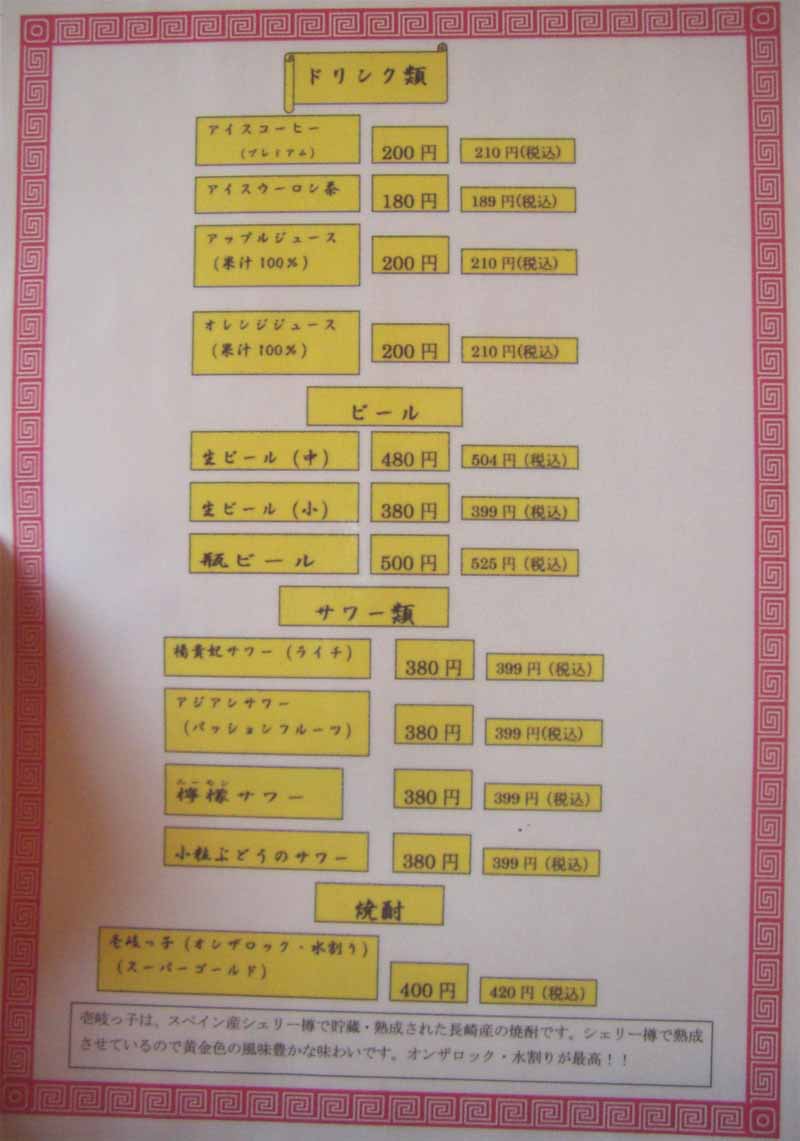 ドリンク類
アイスコーヒー
(プレミアム) 200円 210円(税込)
アイスウーロン茶 180円 189円(税込)
アップルジュース
(果汁100%) 200円 210円(税込)
オレンジジュース
(果汁100%) 200円 210円(税込)
ビール
生ビール(中) 480円 504円(税込)
生ビール(小) 380円 399円(税込)
瓶ビール 500円 525円(税込)
サワー類
楊貴妃サワー(ライチ) 380円 399円(税込)
アジアンサワー
(パッションフルーツ) 380円 399円(税込)
檸檬サワー 380円 399円(税込)
小粒ぶどうのサワー 380円 399円(税込)
焼酎
壱岐っ子(オンザロック・水割り)
(スーパーゴールド) 400円 420円(税込)
壱岐っ子は、スペイン産シェリー樽で貯蔵・熟成された長崎産の焼酎です。シェリー樽で熟成
させているので黄金色の風味豊かな味わいです。オンザロック・水割りが最高！！